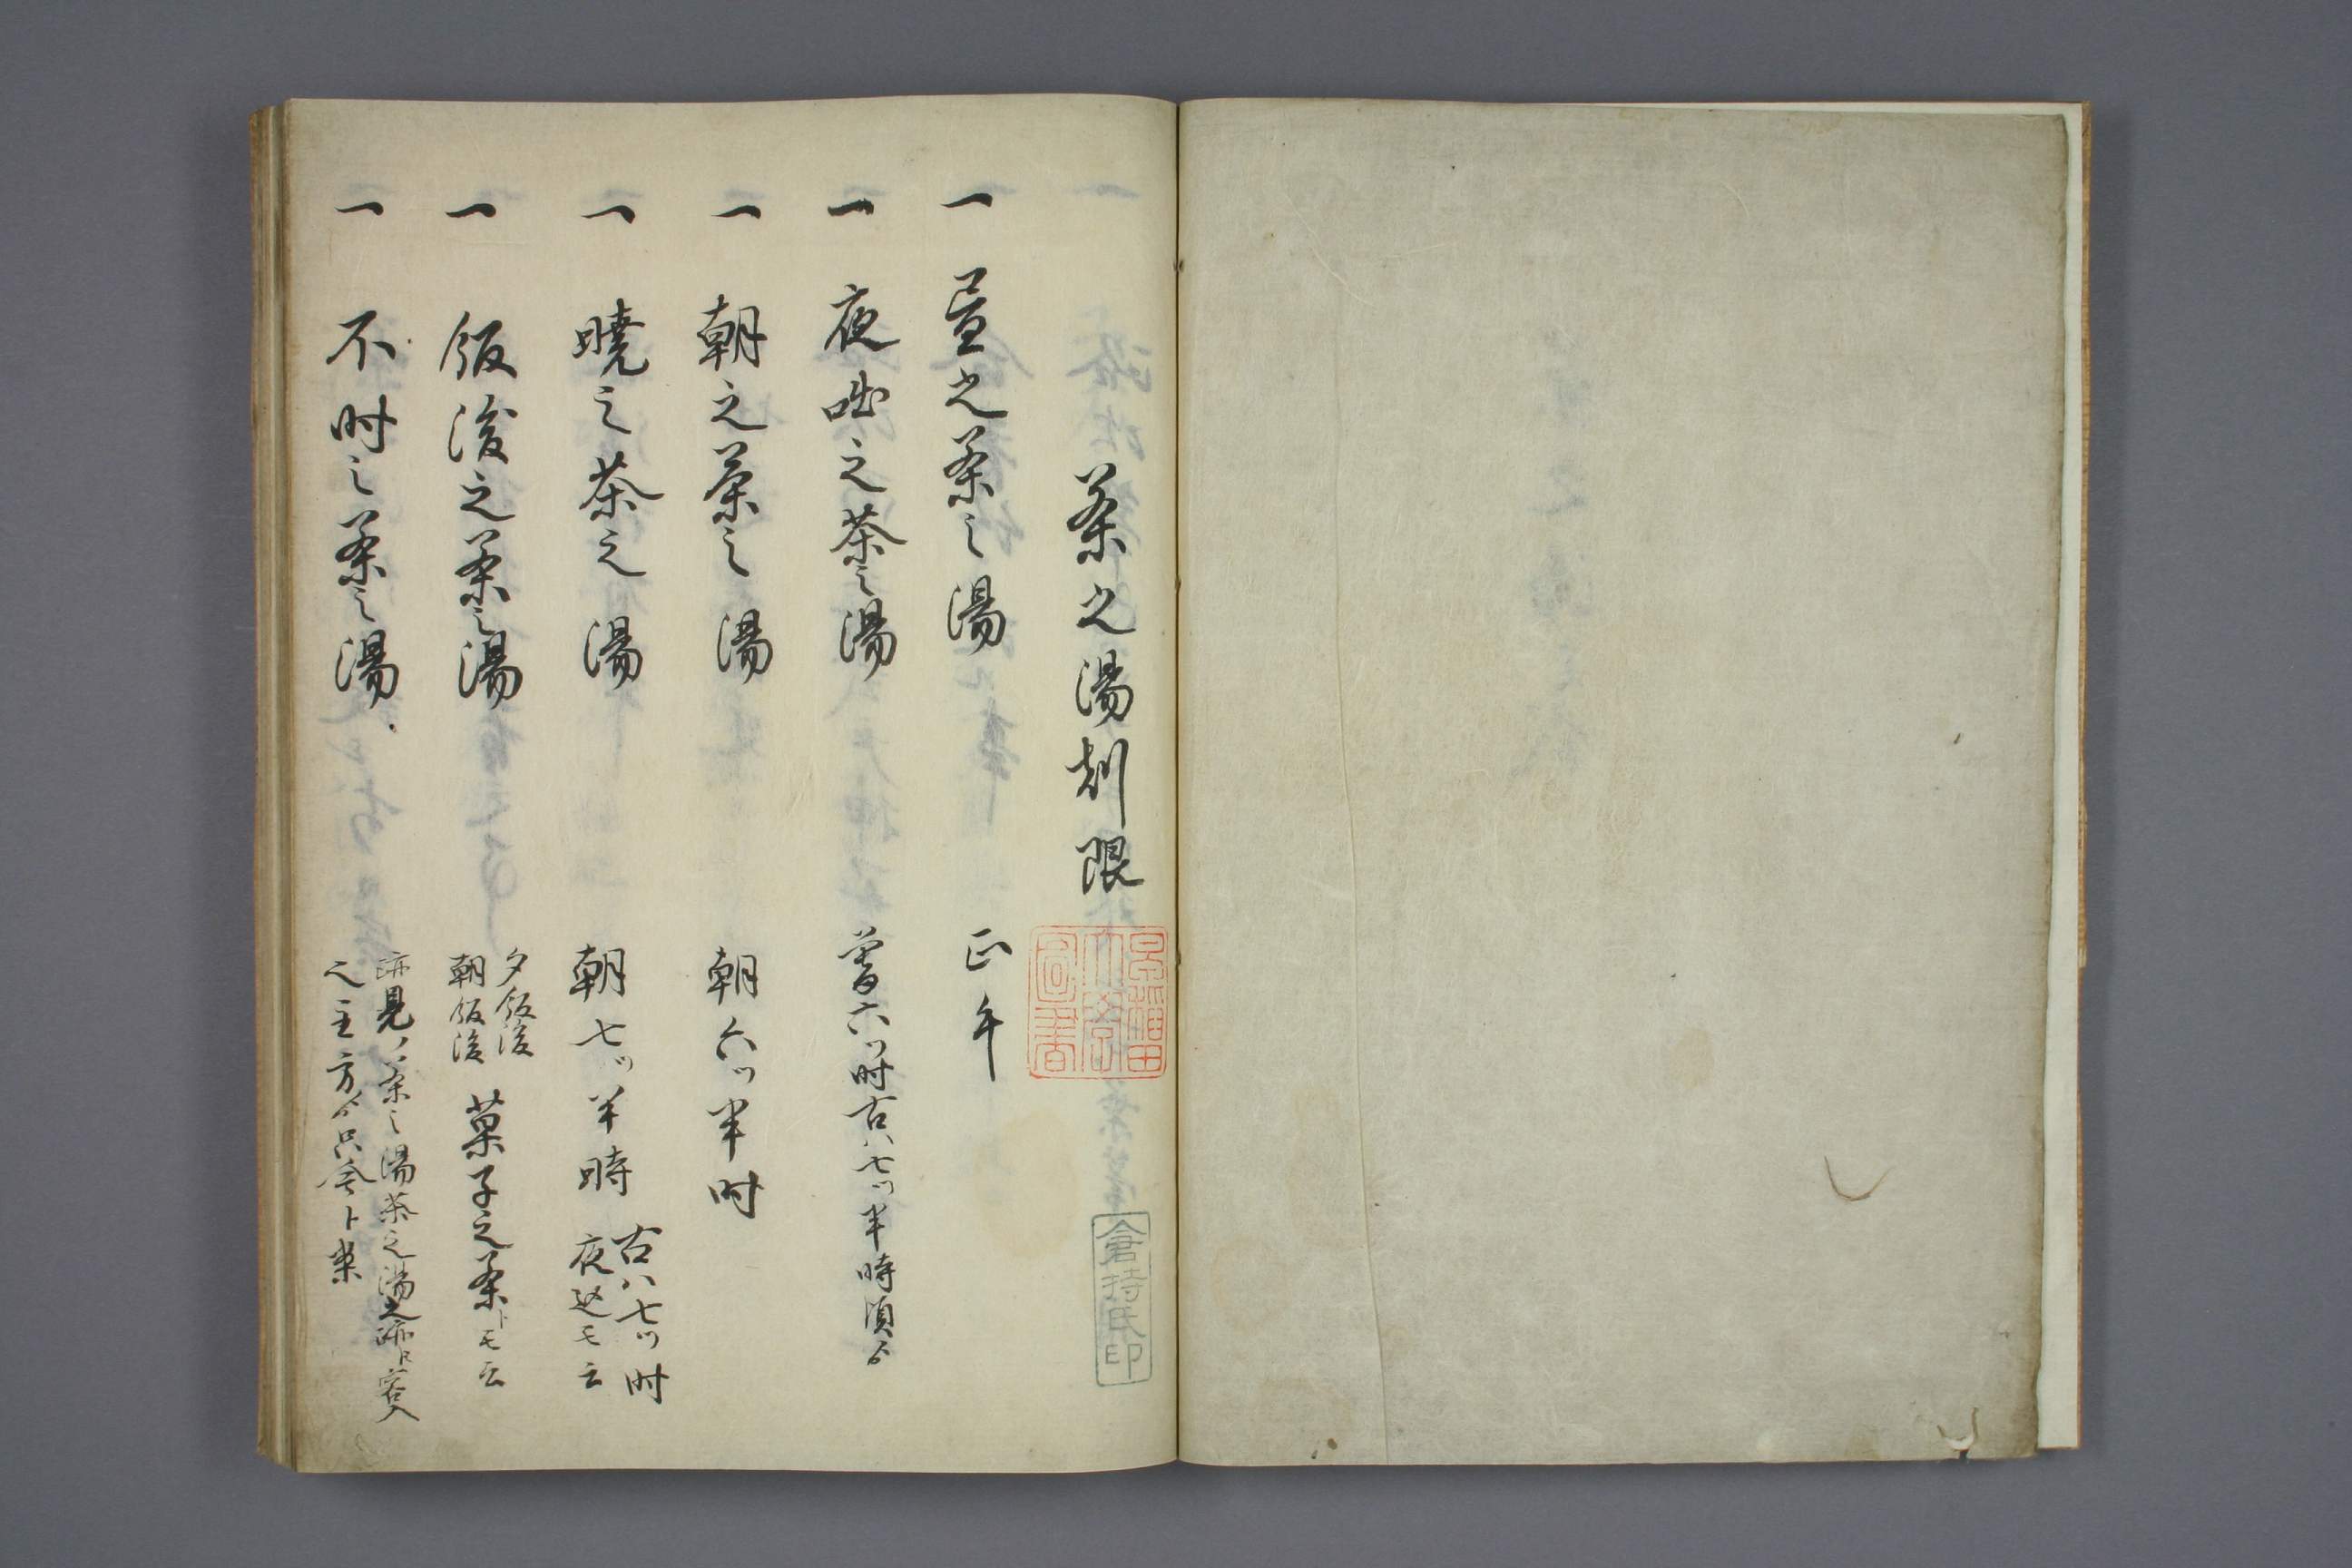 茶之湯刻限
一 昼之茶之湯 正午
一 夜咄之茶之湯 暮六ツ時古ハ七ツ半時頃ゟ
一 朝之茶之湯 朝六ツ半时
一 曉之茶之湯 朝七ツ半時 古ハ七ツ时
夜込モ云
一 飯後之茶之湯 夕飯後
朝飯後 菓子之茶トモ云
一 不时之茶之湯
跡見ノ茶之湯茶之湯之跡ヘ客入
之主方ゟ只今ト案
早稲田大學圖書
倉持氏印